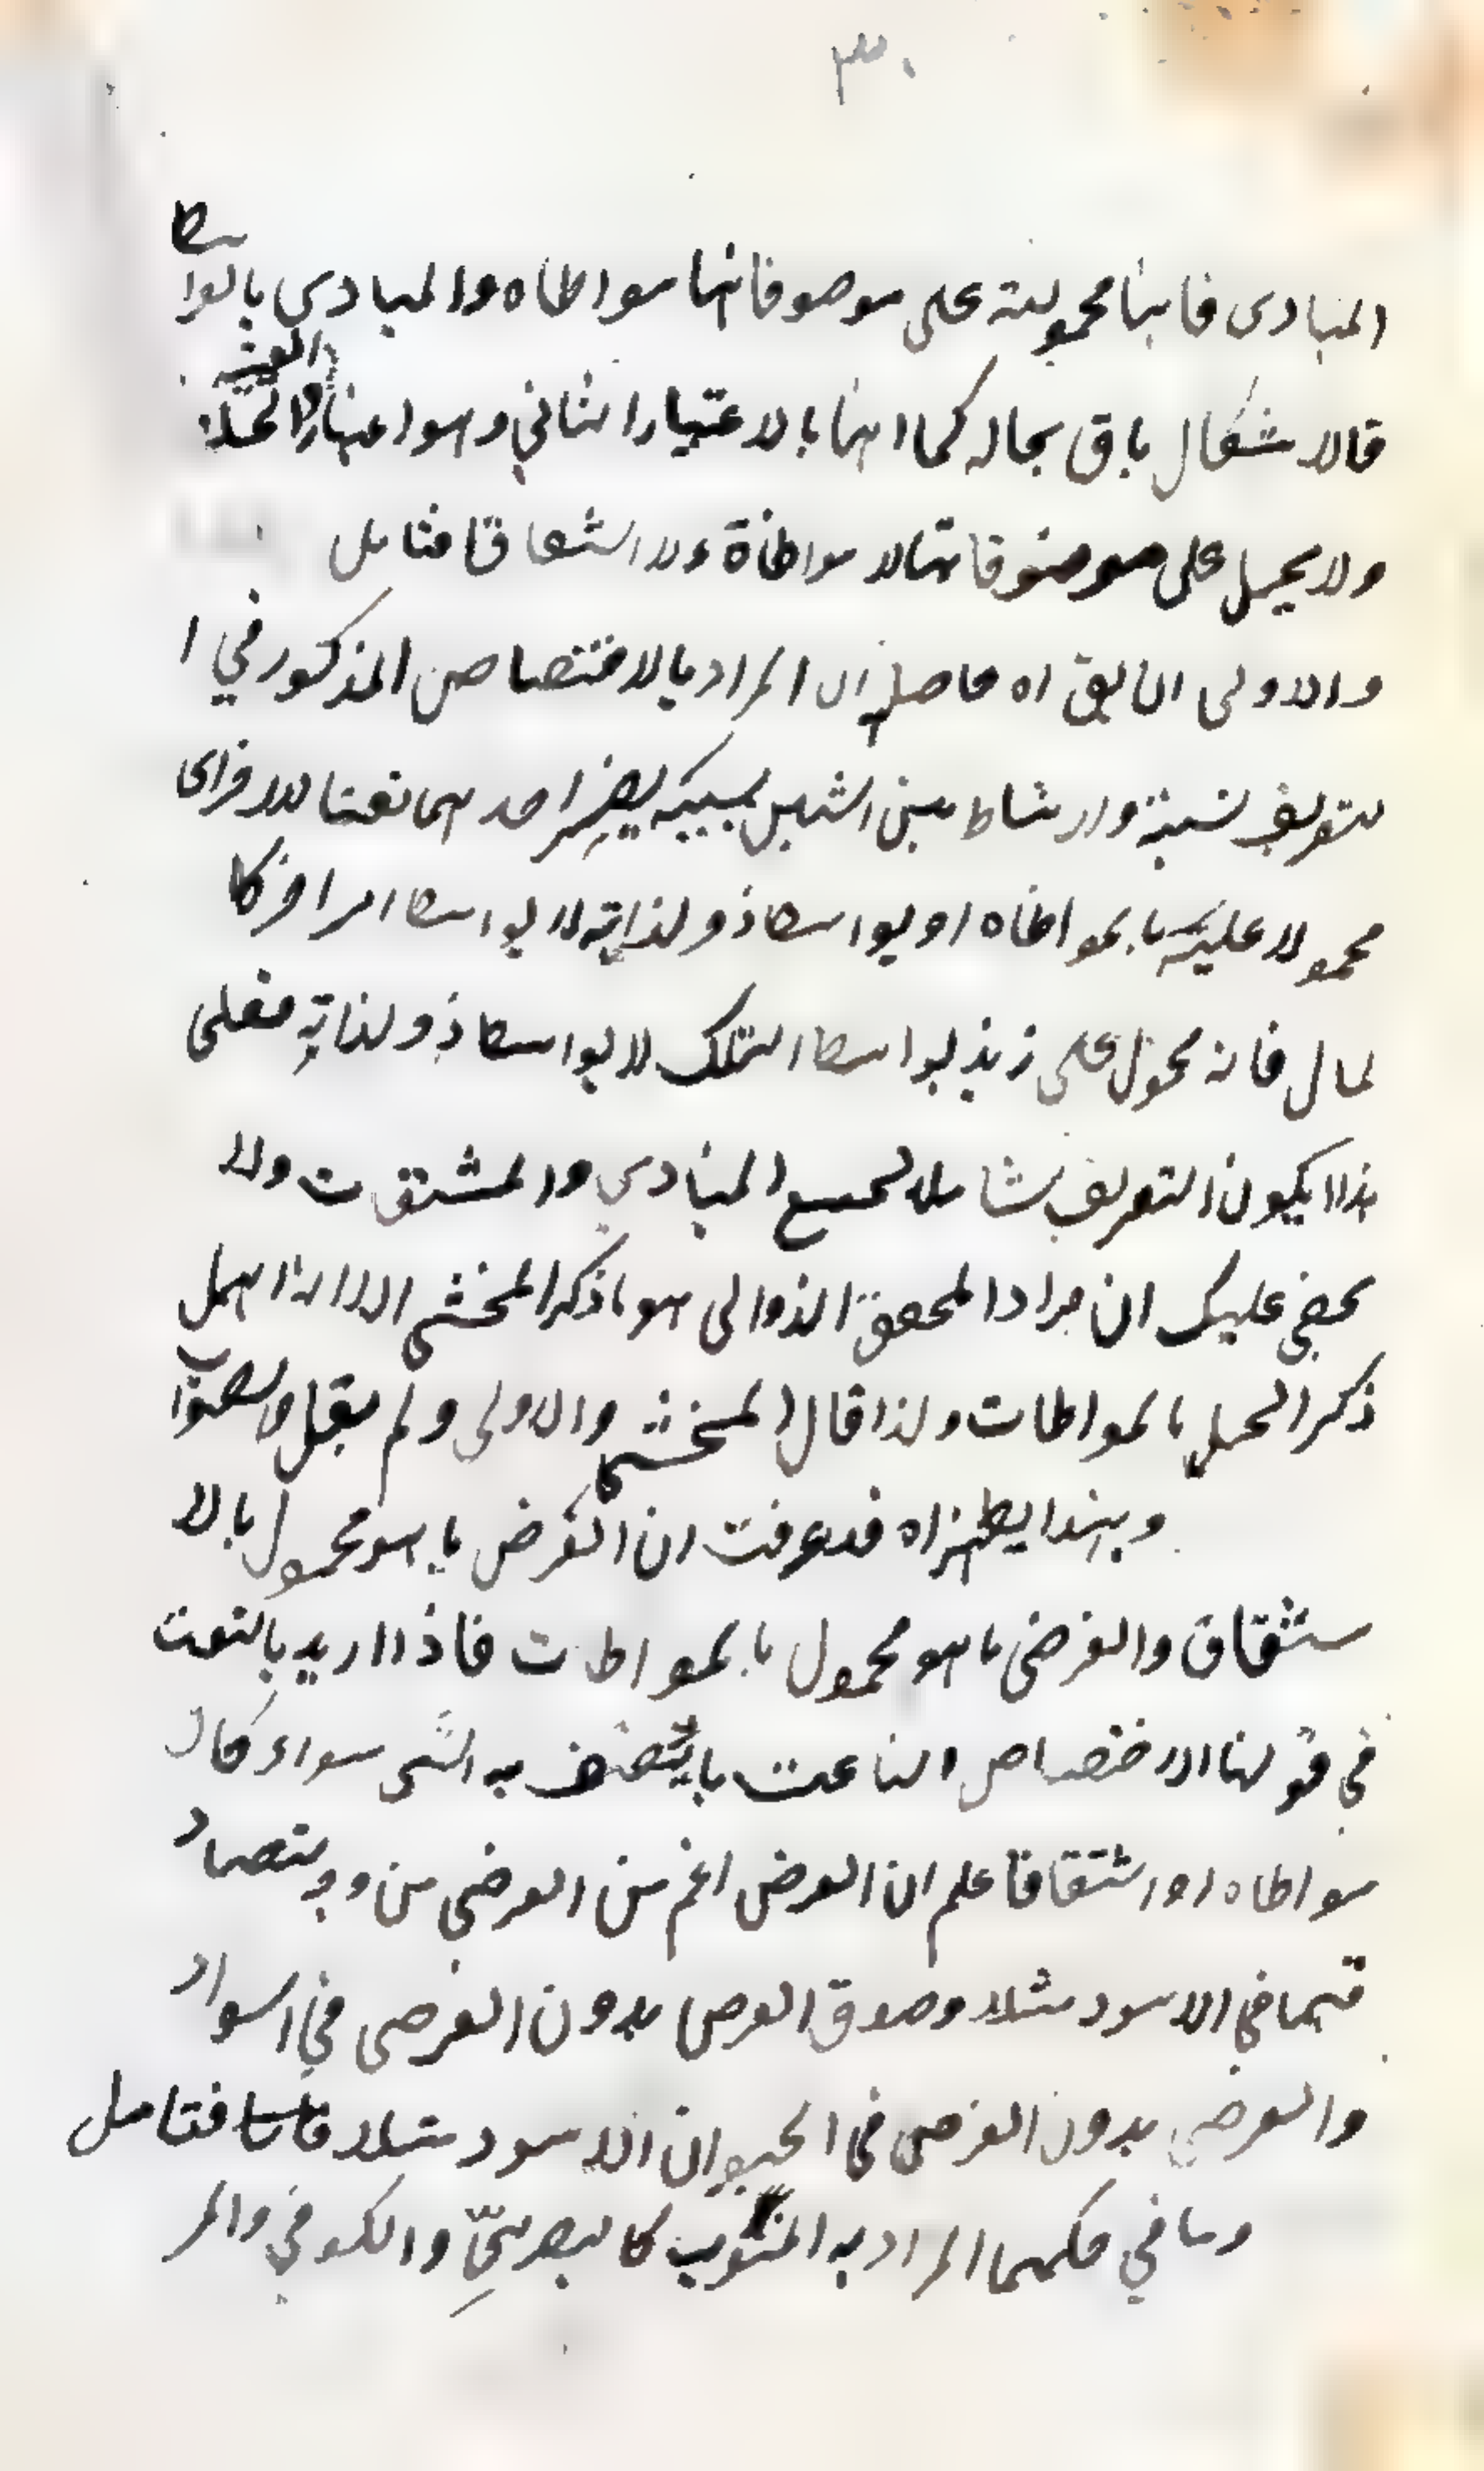 ٣٠
المبادى فانها محمولة على موصوفاتها مواطاه والمبادي بالواسطا
فالاشكال باق بحاله كما انها بالاعتبار الثاني وهو اعتبار
ولا يحمل على موصوفاتها لا مواطاة ولا اشتقاقا فتامل
والاولى ان يق اه حاصله ان المراد بالاختصاص المذكور في ا
لتعريف نسبة وارتباط بين الشيئين بسببه يصير احدهما نعتا للاخر اى
محمولا عليه بالمواطاه او بواسطا ذو لذاته لا بواسطا امر اخر كا
لمال فانه محمول على زيد بواسطا التملك لا بواسطا ذو لذاته فعلى
هذا يكون التعريف شاملا لجميع المبادي والمشتقات ولا
يخفى عليك ان مراد المحقق الدوانى هو ما ذكر المحشى الا انه اهمل
ذكر الحمل بالمواطات ولذا قال المحشى والاولى ولم يقل والصواب
وبهذا يظهر اه قد عرفت ان العرض ما هو محمول بالا
ستقاق والعرضى ما هو محمول بالمواطات فاذا اريد بالنعت
في قولنا الاختصاص الناعت ما يتصف به الشى سواء كان
مواطاه او اشتقاقا علم ان العرض اعم من العرضى من وجه لتصاد
قهما في الاسود مثلا وصدق العرض بدون العرضى في السواد
والعرضى بدون العرض في الحيوان الاسود مثلا فتامل
وما في حكمهما المراد به المنسوب كالبصرىّ والكوفي والمر